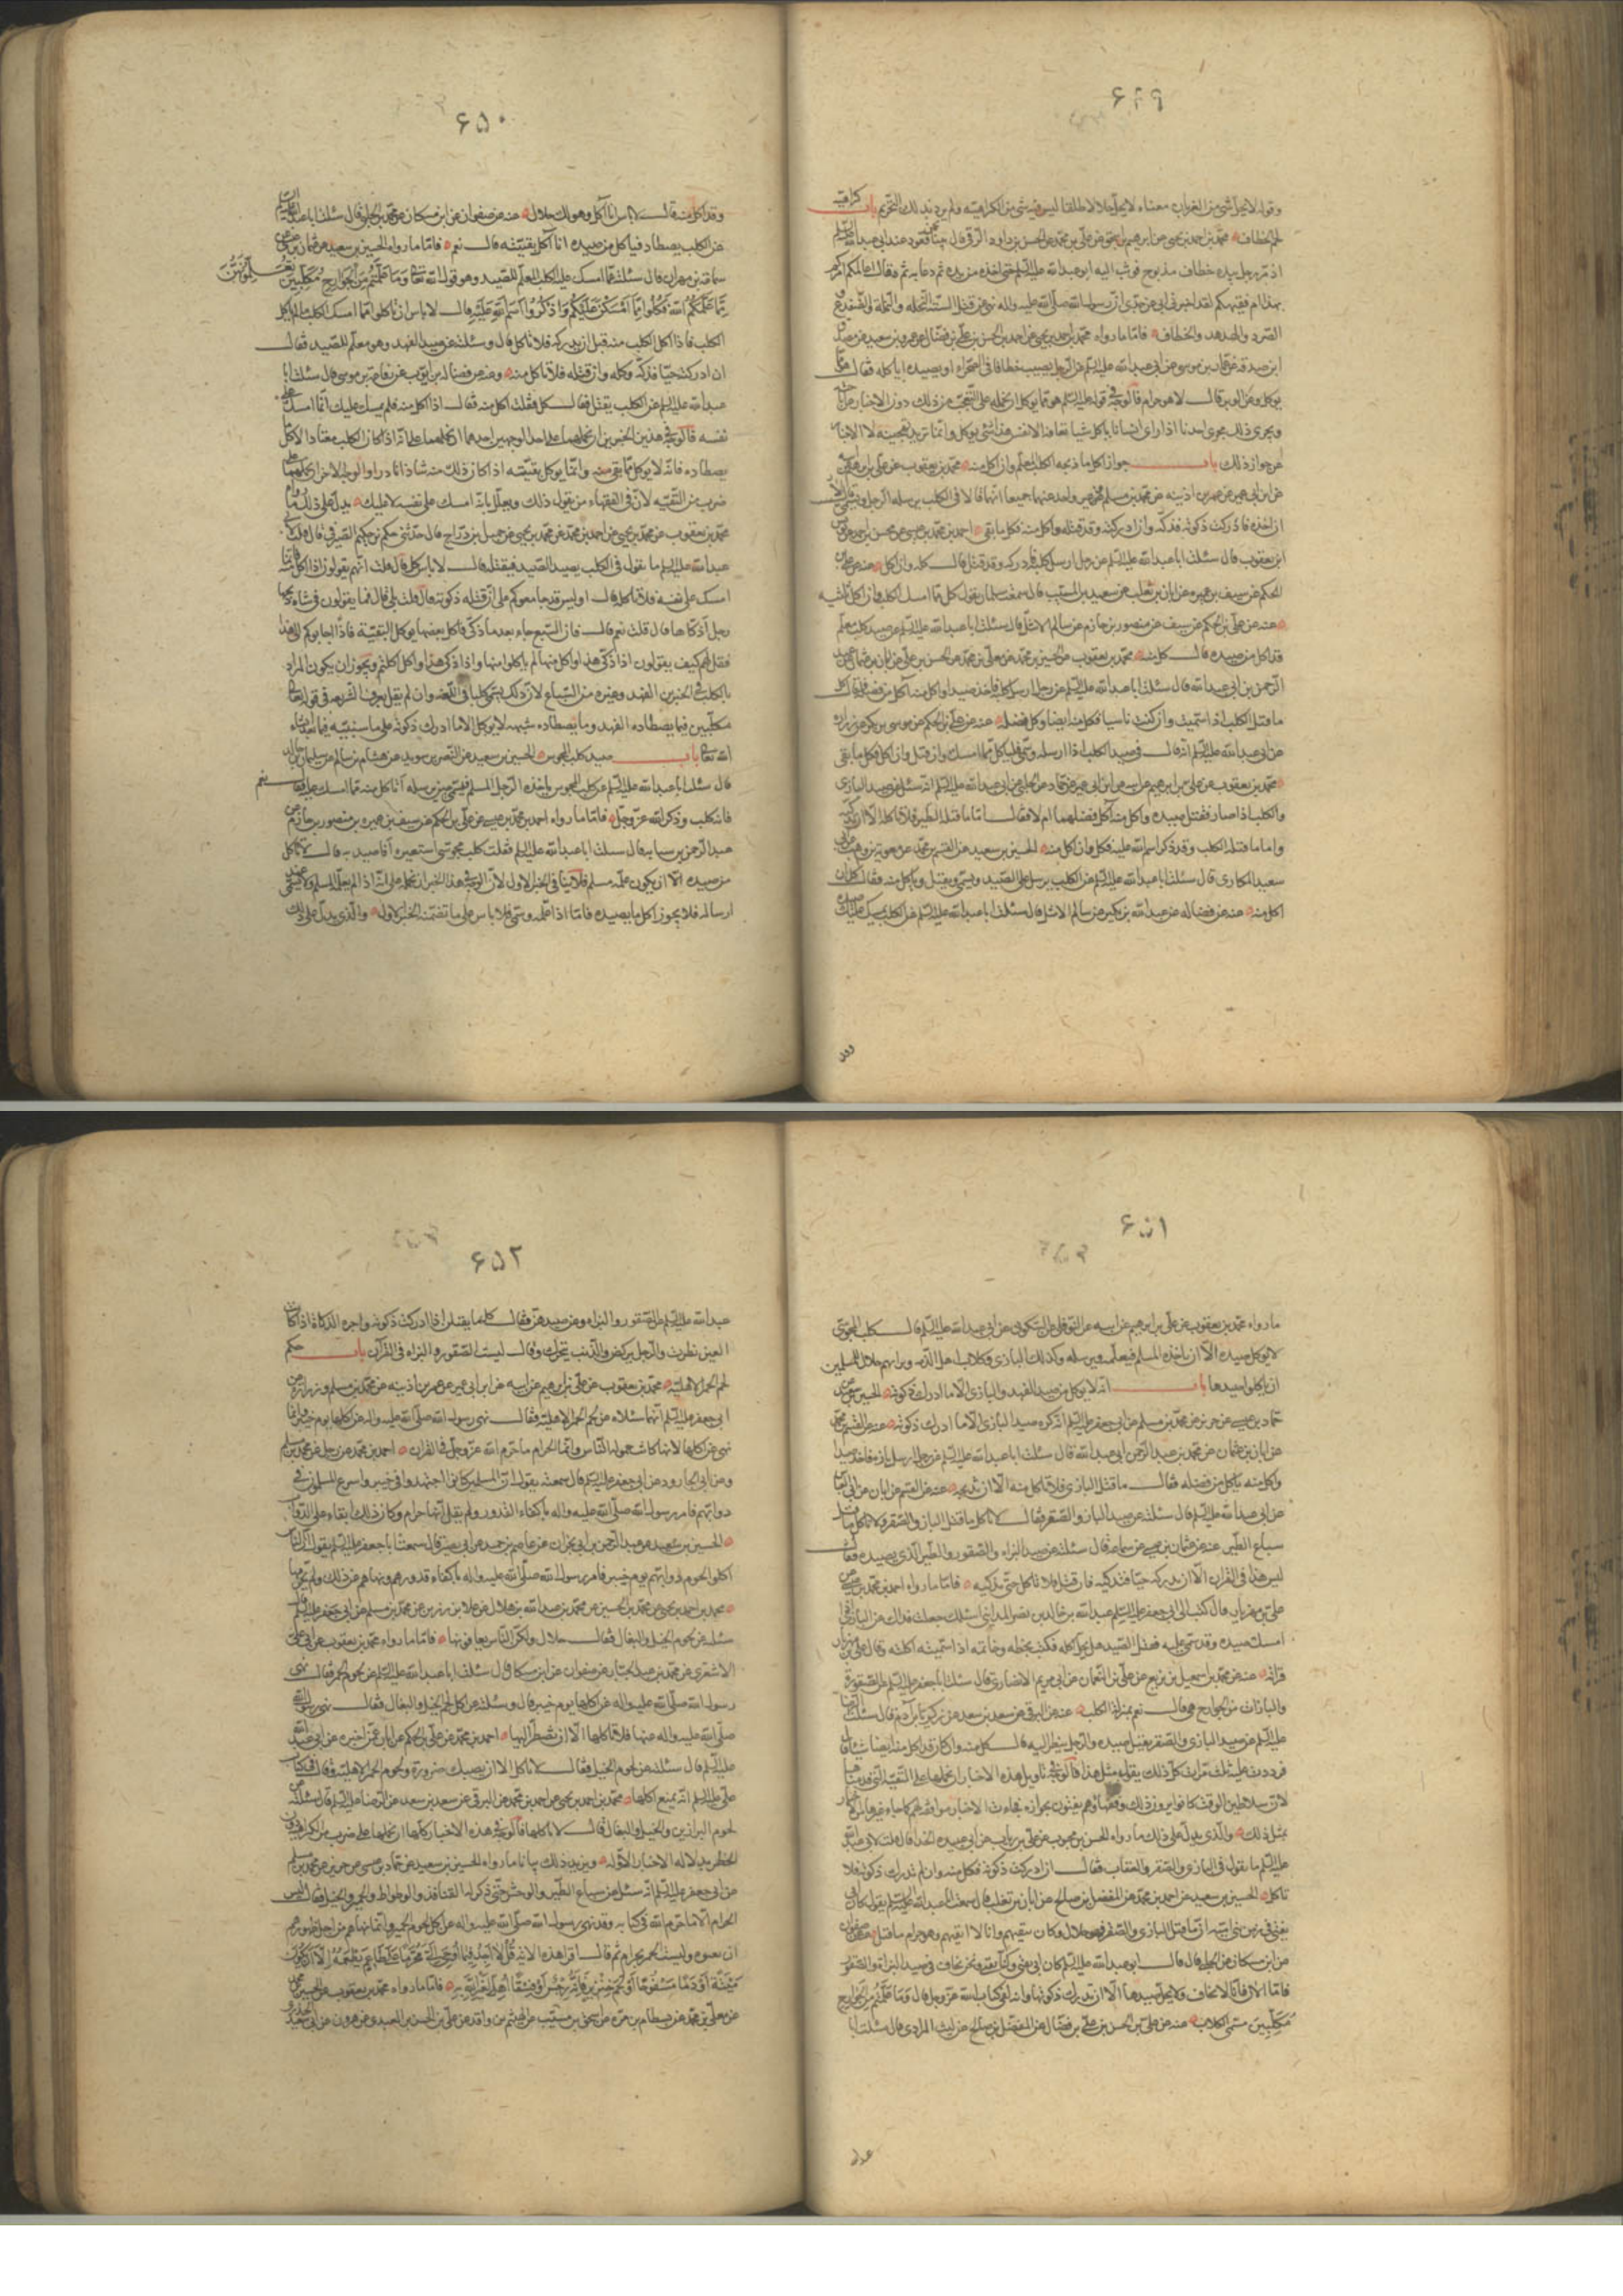 ۶۴۹
وقوله لا يحل شئ من الغربان معناه لا يحل حلالا طلقا ليس فيه شئ من الكراهية ولم يرد بذلك التحريم باب كراهية
لحم الخطاف محمد بن احمد بن يحيى عن ابرهيم بن اسحق عن علي بن محمد عن الحسن بن داود الرقي قال بينا نحن قعود عند ابي عبدالله عليه السلم
اذ مر رجل بيده خطاف مذبوح فوثب اليه ابو عبدالله عليه السلم حتى اخذه من يده ثم دحا به ثم فقال اعالمكم امركم
بهذا ام فقيهكم لقد اخبرني ابي عن جدي ان رسول الله صلى الله عليه واله نهى عن قتل الستة النحلة والنملة والضفدع و
الصرد والهدهد والخطاف فاما ما رواه محمد بن احمد بن يحيى عن احمد بن الحسن بن علي بن فضال عن عمرو بن سعيد عن مصدق
ابن صدقة عن عمار بن موسى عن ابي عبدالله عليه السلم عن الرجل يصيب خطافا في الصحراء او يصيده اياكله فقال هو مما
يوكل وعن الوبر قال لا هو حرام فالوجه في قوله عليه السلم هو مما يوكل ان نحمله على التعجب من ذلك دون الاخبار عن اباحته
ويجري ذلك مجرى احدنا اذا راى انسانا ياكل شيا تعافه الانفس هذا شئ يوكل وانما تريد تهجينه لا الاخبار
عن جواز ذلك باب جواز اكل ما ذبحه الكلب المعلم وان اكل منه محمد بن يعقوب عن علي بن ابرهيم عن
عن ابن ابي عمير عن عمر بن اذينة عن محمد بن مسلم وغير واحد عنهما جميعا انهما قالا في الكلب يرسله الرجل ويسمي قالا
ان اخذه فادركت ذكوته فذكه وان ادركته وقد قتله واكل منه فكل ما بقي احمد بن محمد بن يحيى عن محسن بن احمد عن يونس
ابن يعقوب قال سئلت ابا عبدالله عليه السلم عن رجل ارسل كلبه فادركه وقد قتل قال كل وان اكل عنه عن علي بن
الحكم عن سيف بن عميرة عن ابان بن تغلب عن سعيد بن المسيب قال سمعت سلمان يقول كل مما امسك الكلب وان اكل ثلثيه
عنه عن علي بن الحكم عن سيف عن منصور بن حازم عن سالم الاشل قال سئلت ابا عبدالله عليه السلم عن صيد كلب معلم
قد اكل من صيده قال كل منه محمد بن يعقوب عن الحسين بن محمد عن معلى بن محمد عن الحسن بن علي عن ابان بن عثمان عن عبد
الرحمن بن ابي عبدالله قال سئلت ابا عبدالله عليه السلم عن رجل ارسل كلبه فاخذ صيدا واكل منه آكل من فضله قال كل
ما قتل الكلب اذا سميت وان كنت ناسيا فكل منه ايضا وكل فضله عنه عن علي بن الحكم عن موسى بن بكر عن زرارة
عن ابي عبدالله عليه السلم انه قال في صيد الكلب اذا ارسله وسمى فلياكل مما امسك وان قتل وان اكل فكل ما بقي
محمد بن يعقوب عن علي بن ابرهيم عن ابيه عن ابن ابي عمير عن حماد عن الحلبي عن ابي عبدالله عليه السلم انه سئل عن صيد البازي
والكلب اذا صار فقتل صيده واكل منه آكل فضلهما ام لا فقال اما ما قتله الطير فلا تاكله الا ان تذكيه
واما ما قتله الكلب وقد ذكر اسم الله عليه فكل وان اكل منه الحسين بن سعيد عن القسم بن محمد عن معوية بن وهب عن ابي
سعيد المكاري قال سئلت ابا عبدالله عليه السلم عن الكلب يرسل على الصيد ويسمي ويقتل وياكل منه فقال كل وان
اكل منه عنه عن فضالة عن عبدالله بن بكير عن سالم الاشل قال سئلت ابا عبدالله عليه السلم عن الكلب يمسك عليك صيده
وقد
۶۵۰
وقد اكل منه قال لا باس انما آكل وهو لك حلال عنه عن صفوان عن ابن مسكان عن محمد الحلبي قال سئلت ابا عبدالله عليه السلم
عن الكلب يصطاد فياكل من صيده اناآكل بقيته قال نعم فاما ما رواه الحسين بن سعيد عن عثمان بن عيسى عن
سماعة بن مهران قال سئلته عما امسك عليه الكلب المعلم للصيد وهو قول الله تعالى وَمَا عَلَّمْتُمْ مِنَ الْجَوَارِحِ مُكَلِّبِينَ تُعَلِّمُونَهُنَّ
مِمَّا عَلَّمَكُمُ اللهُ فَكُلُوا مِمَّا اَمْسَكْنَ عَلَيْكُمْ وَاذْكُرُوا اسْمَ اللهِ عَلَيْهِ قال لا باس ان تاكلوا مما امسك الكلب ما لم ياكل
الكلب فاذا اكل الكلب منه قبل ان يدركه فلا تاكل قال وسئلته عن صيد الفهد وهو معلم للصيد فقال
ان ادركته حيا فذكه وكله وان قتله فلا تاكل منه وعنه عن فضالة بن ايوب عن رفاعة بن موسى قال سئلت ابا
عبدالله عليه السلم عن الكلب يقتل فقال كل فقلت اكل منه فقال اذا اكل منه فلم يمسك عليك انما امسك على
نفسه فالوجه في هذين الخبرين ان نحملهما على احد الوجهين احدهما ان نحملهما على انه اذا كان الكلب معتادا لاكل ما
يصطاده فانه لا يوكل مما بقي منه وانما يوكل بقيته اذا كان ذلك منه شاذا نادرا والوجه الاخر ان نحملهما على
ضرب من التقية لان في الفقهاء من يقول ذلك ويعلل بانه امسك على نفسه لا عليك يدل على ذلك ما رواه
محمد بن يعقوب عن محمد بن يحيى عن احمد بن محمد عن محمد بن يحيى عن جميل بن دراج قال حدثني حكم بن حكيم الصيرفي قال قلت لابي
عبدالله عليه السلم ما تقول في الكلب يصيد الصيد فيقتله قال لا باس كل قال قلت انهم يقولون اذا اكل منه فانما
امسك على نفسه فلا تاكل قال اوليس قد جامعوكم على ان قتله ذكوته قال قلت بلى قال فما يقولون في شاة ذبحها
رجل اذكاها قال قلت نعم قال فان السبع جاء بعد ما ذكى فاكل بعضها يوكل البقية فاذا اجابوكم الى هذا
فقل لهم كيف يقولون اذا ذكى هذا واكل منها لم ياكلوا منها واذا ذكى هذا واكل اكلتم ويجوز ان يكون المراد
بالكلب في الخبرين الفهد وغيره من السباع لان ذلك يسمى كلبا في اللغة وان لم يقل بعرف الشريعة في قوله تعالى
مكلبين فيما يصطاده الفهد وما يصطاده شبهه لا يوكل الا ما ادرك ذكوته على ما سنبينه فيما بعد انشاء
الله تعالى باب صيد كلب المجوس الحسين بن سعيد عن النضر بن سويد عن هشام بن سالم عن سليمان بن خالد
قال سئلت ابا عبدالله عليه السلم عن كلب المجوس ياخذه الرجل المسلم فيسمي حين يرسله آناكل منه مما امسك عليه فقال نعم
فانه كلب وذكر الله عز وجل فاما ما رواه احمد بن محمد بن عيسى عن علي بن الحكم عن سيف بن عميرة بن منصور بن حازم عن
عبد الرحمن بن سيابة قال سئلت ابا عبدالله عليه السلم فقلت كلب مجوسي استعيره آفاصيد به قال لا تاكل
من صيده الا ان يكون علمه مسلم فلا ينافي الخبر الاول لان الوجه في هذا الخبر ان نحمله على انه اذا لم يعلمه المسلم ولا يسمي عند
ارساله فلا يجوز اكل ما يصيده فاما اذا علمه وسمى فلا باس على ما تضمنه الخبر الاول والذي يدل على ذلك
۶۵۱
ما رواه محمد بن يعقوب عن علي بن ابرهيم عن ابيه عن النوفلي عن السكوني عن ابي عبدالله عليه السلم قال كلب المجوسي
لا يوكل صيده الا ان ياخذه المسلم فيعلمه ويرسله وكذلك البازي وكلاب اهل الذمة وبزاتهم حلال للمسلمين
ان ياكلوا صيدها باب انه لا يوكل من صيد الفهد والبازي الا ما ادرك ذكوته الحسين بن سعيد عن
حماد بن عيسى عن حريز عن محمد بن مسلم عن ابي جعفر عليه السلم انه كره صيد البازي الا ما ادرك ذكوته عنه عن القسم بن محمد
عن ابان بن عثمان عن محمد بن عبد الرحمن بن ابي عبدالله قال سئلت ابا عبدالله عليه السلم عن رجل ارسل بازه فاخذ صيدا
واكل منه ياكل من فضله فقال ما قتل البازي فلا تاكل منه الا ان تذبحه عنه عن القسم عن ابان عن ابي العباس
عن ابي عبدالله عليه السلم قال سئلته عن صيد الباز والصقر فقال لا تاكل ما قتل الباز والصقر ولا تاكل ما قتل
سباع الطير عنه عن عثمان بن عيسى عن سماعة قال سئلته عن صيد البزاة والصقور والطير الذي يصيده فقال
ليس هذا في القران الا ان تدركه حيا فتذكيه فان قتل فلا تاكل حتى تذكيه فاما ما رواه احمد بن محمد بن عيسى عن
علي بن مهزيار قال كتب الى ابي جعفر عليه السلم عبدالله بن خالد بن نصر المدايني اسئلك جعلت فداك عن البازي اذا
امسك صيده وقد سمى عليه فقتل الصيد هل يحل اكله فكتب بخطه وخاتمه اذا سميته اكلته وقال علي بن مهزيار
قراته عنه عن محمد بن اسمعيل بن بزيع عن علي بن النعمان عن ابي مريم الانصاري قال سئلت ابا جعفر عليه السلم عن الصقورة
والبازات من الجوارح هي قال نعم بمنزلة الكلب عنه عن البرقي عن سعد بن سعد عن زكريا بن آدم قال سئلت الرضا
عليه السلم عن صيد البازي والصقر يقتل صيده والرجل ينظر اليه قال كل منه وان كان قد اكل منه ايضا شيئا قال
فرددت عليه ثلث مرات كل ذلك يقول مثل هذا فالوجه في تاويل هذه الاخبار ان نحملها على التقية التي قدمناها
لان سلاطين الوقت كانوا يرون ذلك وفقهاؤهم يفتون بجوازه فجاءت الاخبار موافقة لهم كما جاء غيرها من الاخبار
بمثل ذلك والذي يدل على ذلك ما رواه الحسن بن محبوب عن علي بن رئاب عن ابي عبيدة الحذاء قال قلت لابي عبدالله
عليه السلم ما تقول في البازي والصقر والعقاب فقال ان ادركت ذكوته فكل منه وان لم تدرك ذكوته فلا
تاكل الحسين بن سعيد عن احمد بن محمد عن المفضل بن صالح عن ابان بن تغلب قال سمعت ابا عبدالله عليه السلم يقول كان ابي
يفتي في زمن بني امية ان ما قتل البازي والصقر فهو حلال وكان يتقيهم وانا لا اتقيهم وهو حرام ما قتل عنه عن صفوان
عن ابن مسكان عن الحلبي قال قال ابو عبدالله عليه السلم كان ابي يفتي وكنا نفتي ونحن نخاف في صيد البزاة والصقور
فاما الان فانا لا نخاف ولا يحل صيدها الا ان تدرك ذكوتها وانه لفي كتاب الله عز وجل قال وَمَا عَلَّمْتُمْ مِنَ الْجَوَارِحِ
مُكَلِّبِينَ فسمى الكلاب عنه عن علي بن الحسن بن علي بن فضال عن المفضل بن صالح عن ليث المرادي قال سئلت ابا
عبدالله
۶۵۲
عبدالله عليه السلم عن الصقور والبزاة وعن صيدهن فقال كل ما لم يقتلن اذا ادركت ذكوته واخر الذكاة اذا كانت
العين تطرف والرجل يركض والذنب يتحرك وقال ليست الصقور والبزاة في القرآن باب حكم
لحم الحمر الاهلية محمد بن يعقوب عن علي بن ابرهيم عن ابيه عن ابن ابي عمير عن عمر بن اذينة عن محمد بن مسلم وزرارة عن
ابي جعفر عليه السلم انهما سئلاه عن لحم الحمر الاهلية فقال نهى رسول الله صلى الله عليه واله عن اكلها يوم خيبر وانما
نهى عن اكلها لانها كانت حمولة الناس وانما الحرام ما حرم الله عز وجل في القران احمد بن محمد عن رجل عن محمد بن مسلم
وعن ابي الجارود عن ابي جعفر عليه السلم قال سمعته يقول ان المسلمين كانوا اجهدوا في خيبر واسرع المسلمون في
دوابهم فامر رسول الله صلى الله عليه واله باكفاء القدور ولم يقل انها حرام وكان ذلك ابقاء على الدواب
الحسين بن سعيد عن عبد الرحمن بن ابي نجران عن عاصم بن حميد عن ابي بصير قال سمعت ابا جعفر عليه السلم يقول ان الناس
اكلوا لحوم دوابهم يوم خيبر فامر رسول الله صلى الله عليه واله باكفاء قدورهم ونهاهم عن ذلك ولم يحرمها
محمد بن احمد بن يحيى عن محمد بن الحسين عن محمد بن عبدالله بن هلال عن علا بن رزين عن محمد بن مسلم عن ابي جعفر عليه السلم قال
سئلته عن لحوم الخيل والبغال فقال حلال ولكن الناس يعافونها فاما ما رواه محمد بن يعقوب عن ابي علي
الاشعري عن محمد بن عبد الجبار عن صفوان عن ابن مسكان قال سئلت ابا عبدالله عليه السلم عن لحوم الحمر فقال نهى
رسول الله صلى الله عليه واله عن اكلها يوم خيبر قال وسئلته عن اكل لحم الخيل والبغال فقال نهى رسول الله
صلى الله عليه واله عنها فلا تاكلها الا ان تضطر اليها احمد بن محمد عن علي بن الحكم عن ابان عمن اخبره عن ابي عبدالله
عليه السلم قال سئلته عن لحوم الخيل فقال لا تاكل الا ان تصيبك ضرورة ولحوم الحمر الاهلية فقال في كتاب
علي عليه السلم انه يمنع اكلها محمد بن احمد بن يحيى عن احمد بن محمد عن البرقي عن سعد بن سعد عن الرضا عليه السلم قال سئلته عن
لحوم البراذين والخيل والبغال فقال لا تاكلها فالوجه في هذه الاخبار كلها ان نحملها على ضرب من الكراهية دون
الحظر بدلالة الاخبار الاولة ويزيد ذلك بيانا ما رواه الحسين بن سعيد عن حماد بن عيسى عن حريز عن محمد بن مسلم
عن ابي جعفر عليه السلم انه سئل عن سباع الطير والوحش حتى ذكر له القنافذ والوطواط والحمير والخيل فقال ليس
الحرام الا ما حرم الله في كتابه وقد نهى رسول الله صلى الله عليه واله عن اكل لحوم الحمير وانما نهاهم من اجل ظهورهم
ان يفنوه وليست الحمر بحرام ثم قال اقرا هذه الاية قُلْ لَا اَجِدُ فِيمَا اُوحِيَ اِلَيَّ مُحَرَّمًا عَلَى طَاعِمٍ يَطْعَمُهُ اِلَّا اَنْ يَكُونَ
مَيْتَةً اَوْ دَمًا مَسْفُوحًا اَوْ لَحْمَ خِنْزِيرٍ فَاِنَّهُ رِجْسٌ اَوْ فِسْقًا اُهِلَّ لِغَيْرِ اللهِ بِهِ فاما ما رواه محمد بن يعقوب عن الحسين بن محمد
عن معلى بن محمد عن بسطام بن مرة عن اسحق بن حسان عن الهيثم بن واقد عن علي بن الحسن العبدي عن هرون عن ابي سعيد الخدري